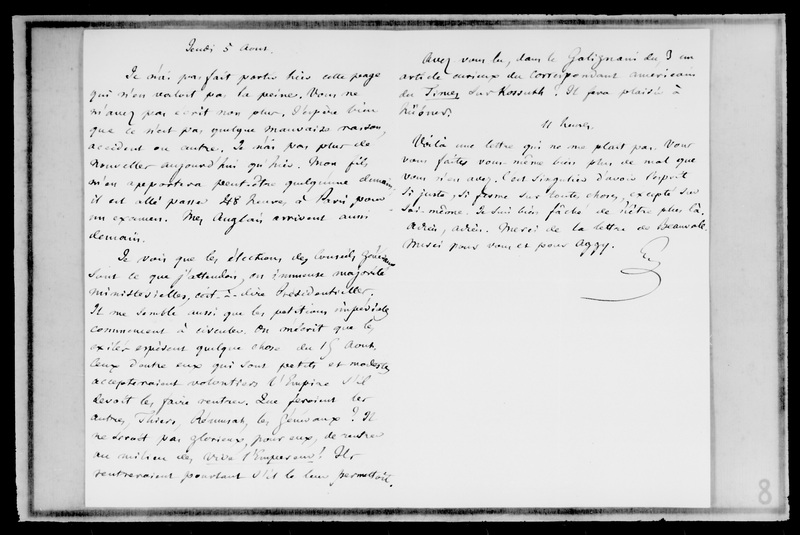 Jeudi 5 Aout.
Je n'ai pas fait partir hier cette page
qui n'en valait pas la peine. Vous ne
m'avez pas écrit non plus. J'espère bien
que ce n'est pas quelque mauvaise raison,
accident ou autre. Je n'ai pas plus de
nouvelles aujourd'hui qu'hier. Mon fils
m'en apportera peut-être quelqu'une demain,
il est allé passer 48 heures à Paris pour
un examen. Mes Anglais arrivent aussi
demain.
Je vois que les élections des Conseils Généraux
sont ce que j'attendais, en immense majorité
ministérielles, c'est-à-dire Présidentielles.
Il me semble aussi que les pétitions impériales
commencent à circuler. On m'écrit que les
exilés espèrent quelque chose du 15 Aout.
Ceux d'entre eux qui sont petits et modestes
accepteraient volontiers l'Empire s'il
devait les faire rentrer. Que feroient les
autres, Thiers, Rémusat, les Généraux ? Il
ne seroit pas glorieux, pour eux, de rentrer
au milieu des Vive l'Empereur ! Ils
rentreraient pourtant s'il le leur permettoit.
Avez vous lu, dans le Galignani du 3 un
article curieux du correspondant americain
du Times sur Kossuth ? Il fera plaisir à
Hübner.
11 heures.
Voilà une lettre qui ne me plait pas. Vous
vous faites vous-même bien plus de mal que
vous n'en avez. C'est singulier d'avoir l'esprit
si juste, si ferme sur toutes choses, excepté sur
soi-même. Je suis bien fâché de n'être plus là.
Adieu, adieu. Merci de la lettre de Beauvale.
Merci pour vous et pour Aggy.
8